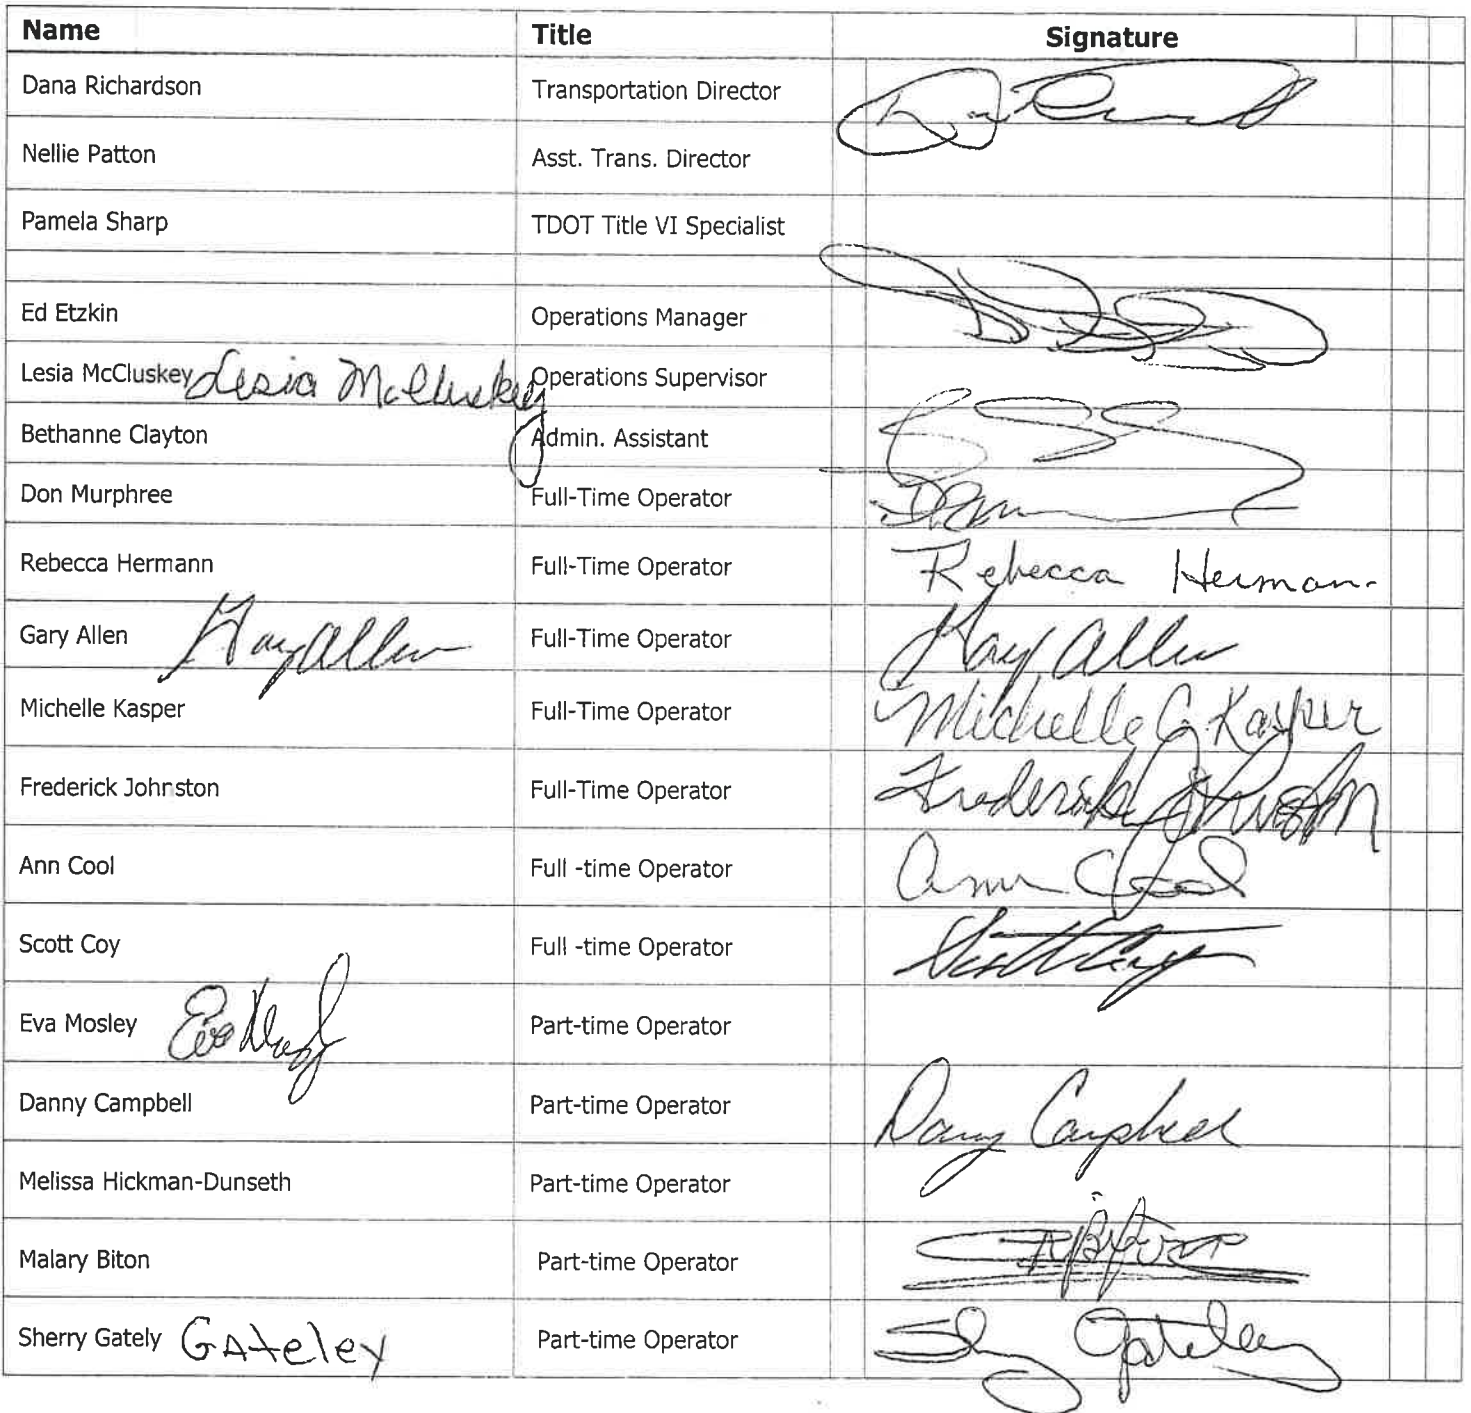 Name Title Signature
Dana Richardson Transportation Director
Nellie Patton Asst. Trans. Director
Pamela Sharp TDOT Title VI Specialist
Ed Etzkin Operations Manager
Lesia McCluskey Lesia McCluskey Operations Supervisor
Bethanne Clayton Admin. Assistant
Don Murphree Full-Time Operator
Rebecca Hermann Full-Time Operator Rebecca Herman
Gary Allen Gary Allen Full-Time Operator Gary Allen
Michelle Kasper Full-Time Operator Michelle C Kasper
Frederick Johnston Full-Time Operator Frederick Johnston
Ann Cool Full -time Operator Ann Cool
Scott Coy Full -time Operator Scott Coy
Eva Mosley Eva Part-time Operator
Danny Campbell Part-time Operator Danny Campbell
Melissa Hickman-Dunseth Part-time Operator
Malary Biton Part-time Operator
Sherry Gately GAteley Part-time Operator Gateley